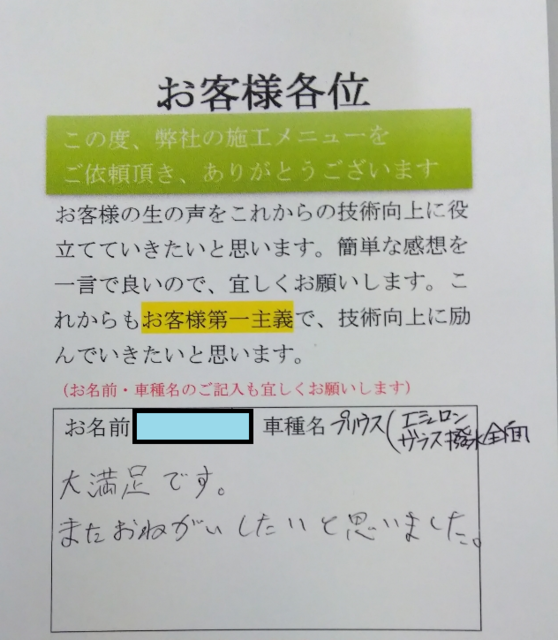 お客様各位
この度、弊社の施工メニューを
ご依頼頂き、ありがとうございます
お客様の生の声をこれからの技術向上に役
立てていきたいと思います。簡単な感想を
一言で良いので、宜しくお願いします。こ
れからもお客様第一主義で、技術向上に励
んでいきたいと思います。
(お名前・車種名のご記入も宜しくお願いします)
お名前 車種名 プリウス(エシュロン
ガラス撥水全面
大満足です。
またおねがいしたいと思いました。